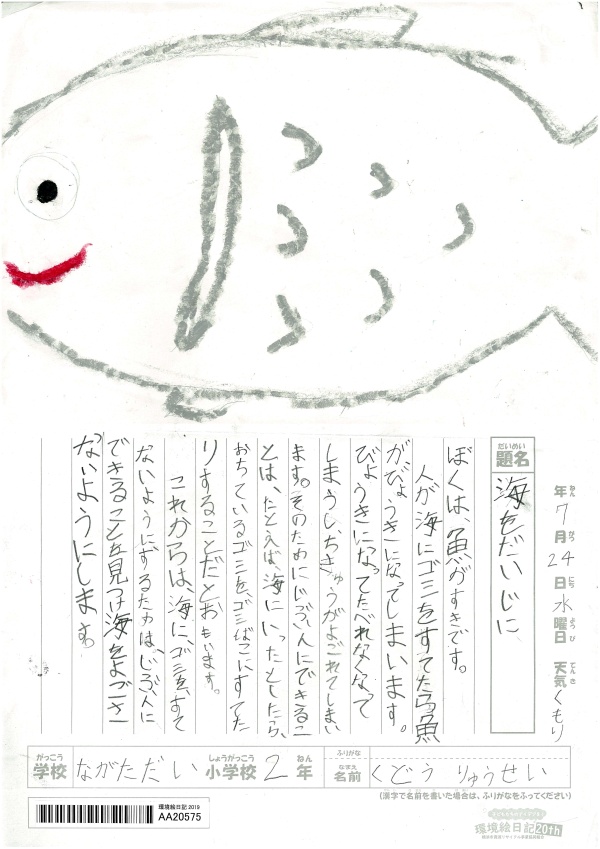 年 7月24日水曜日 天気くもり
ねん がつ にち ようび てんき
だいめい
題名 海をだいじに
ぼくは、魚がすきです。
人が海にゴミをすてたら魚
がびょうきになってしまいます。
びょうきになってたべれなくなって
しまうし、ちきゅうがよごれてしまい
ます。そのためにじぶんにできるこ
とは、たとえば、海にいったとしたら、
おちているゴミを、ゴミばこにすてた
りすることだとおもいます。
これからは、海に、ゴミを、すて
ないようにするためは、じぶんに
できることを見つけ海をよごさ
ないようにします。
がっこう
学校 ながただい
しょうがっこう ねん
小学校 2年
ふりがな
なまえ
名前 くどう りゅうせい
(漢字で名前を書いた場合は、ふりがなをふってください)
環境絵日記 2019
AA20575
環境絵日記 20th